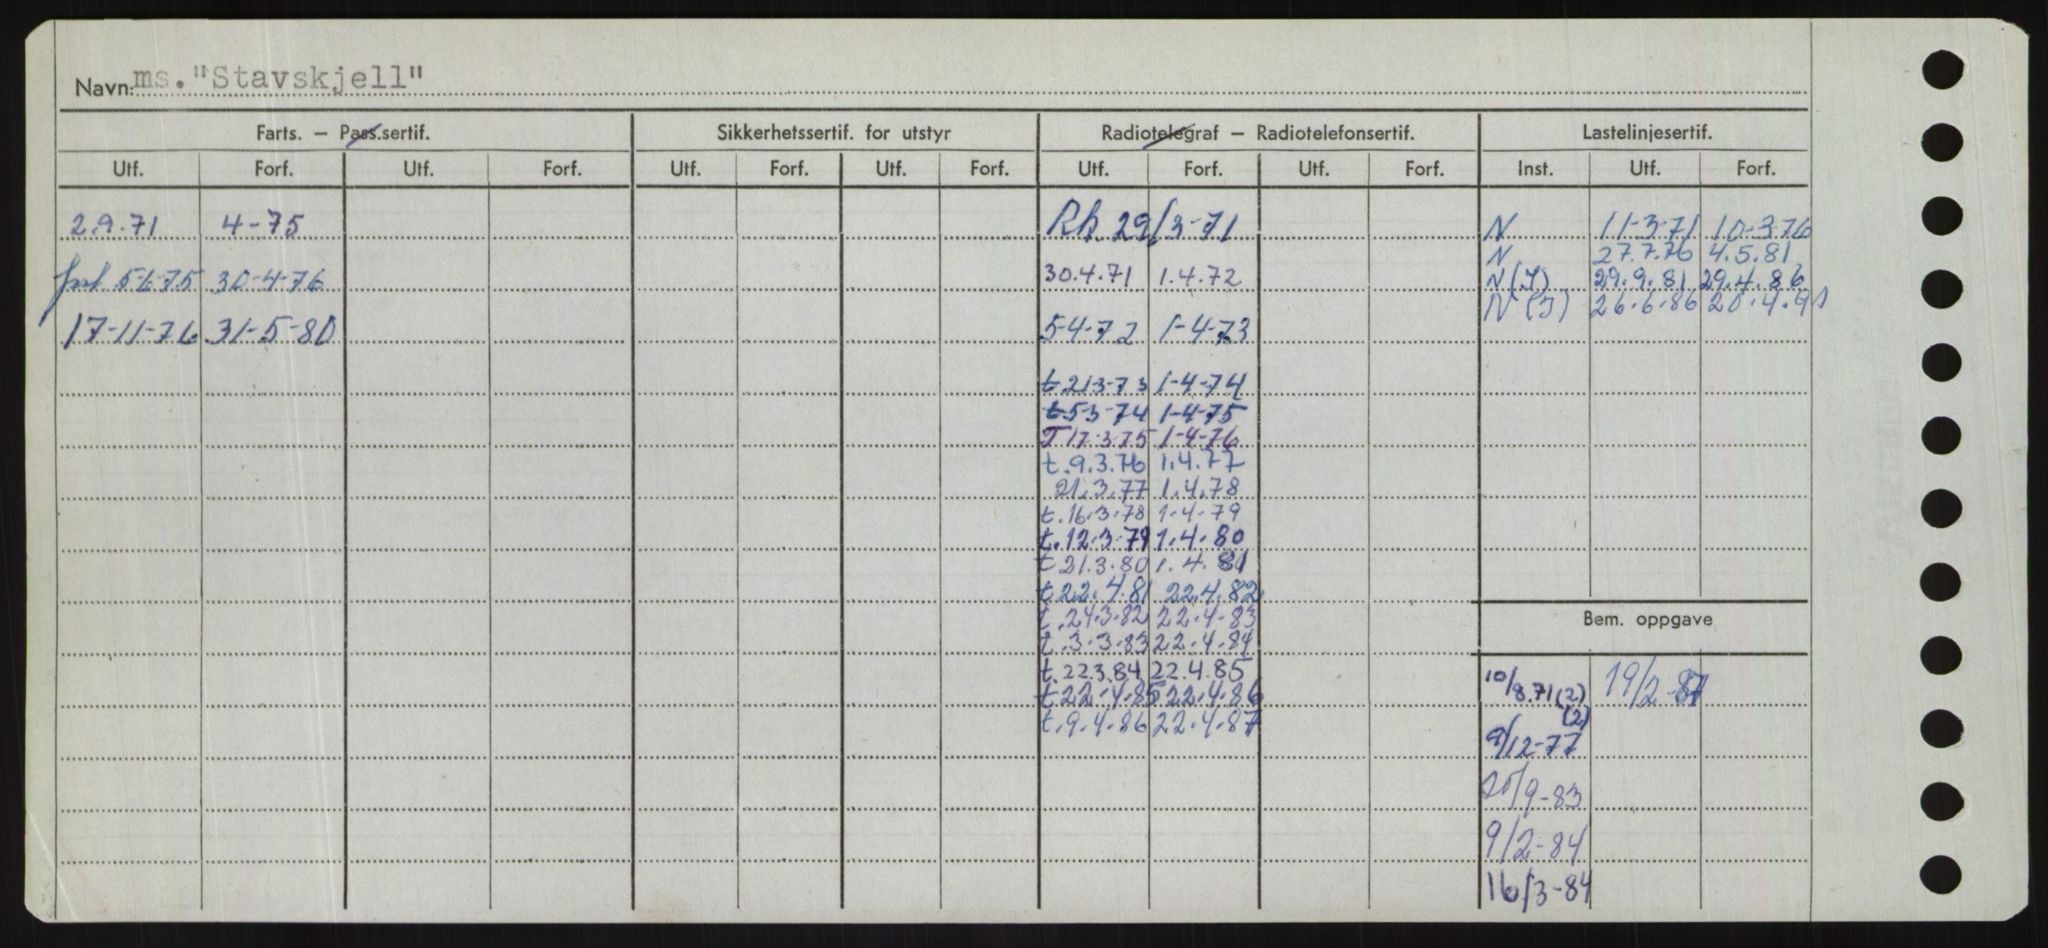 Navn: ms. "Stavskjell"
Farts. — Pass.sertif. Sikkerhetssertif. for utstyr Radiotelegraf — Radiotelefonsertif. Lastelinjesertif.
Utf. Forf. Utf. Forf. Utf. Forf. Utf. Forf. Utf. Forf. Utf. Forf. Inst. Utf. Forf.
2.9.71 4-75
30-4-76
17-11-76 31-5-80
Rk 29/3-71
30.4.71 1.4.72
5-4-72 1-4-73
t.21.3-73 1-4-74
t.5-3-74 1-4-75
T 17-3-75 1-4-76
t.9.3.76 1.4.77
21.3.77 1.4.78
t.16.3.78 1.4.79
t.12.3.79 1.4.80
t 21.3.80 1.4.81
t 22.4.81 22.4.82
t.24.3.82 22.4.83
t.3.3.83 22.4.84
t.22.3.84 22.4.85
t 22.4.85 22.4.86
t.9.4.86 22.4.87
N 11-3-71 10-3-76
N 27.7.76 4.5.81
N(I) 29.9.81 29.4.86
N(I) 26.6.86 20.4.91
Bem. oppgave
10/8.71(2) 19/2-87
(2)
9/12-77
20/9-83
9/2-84
16/3-84